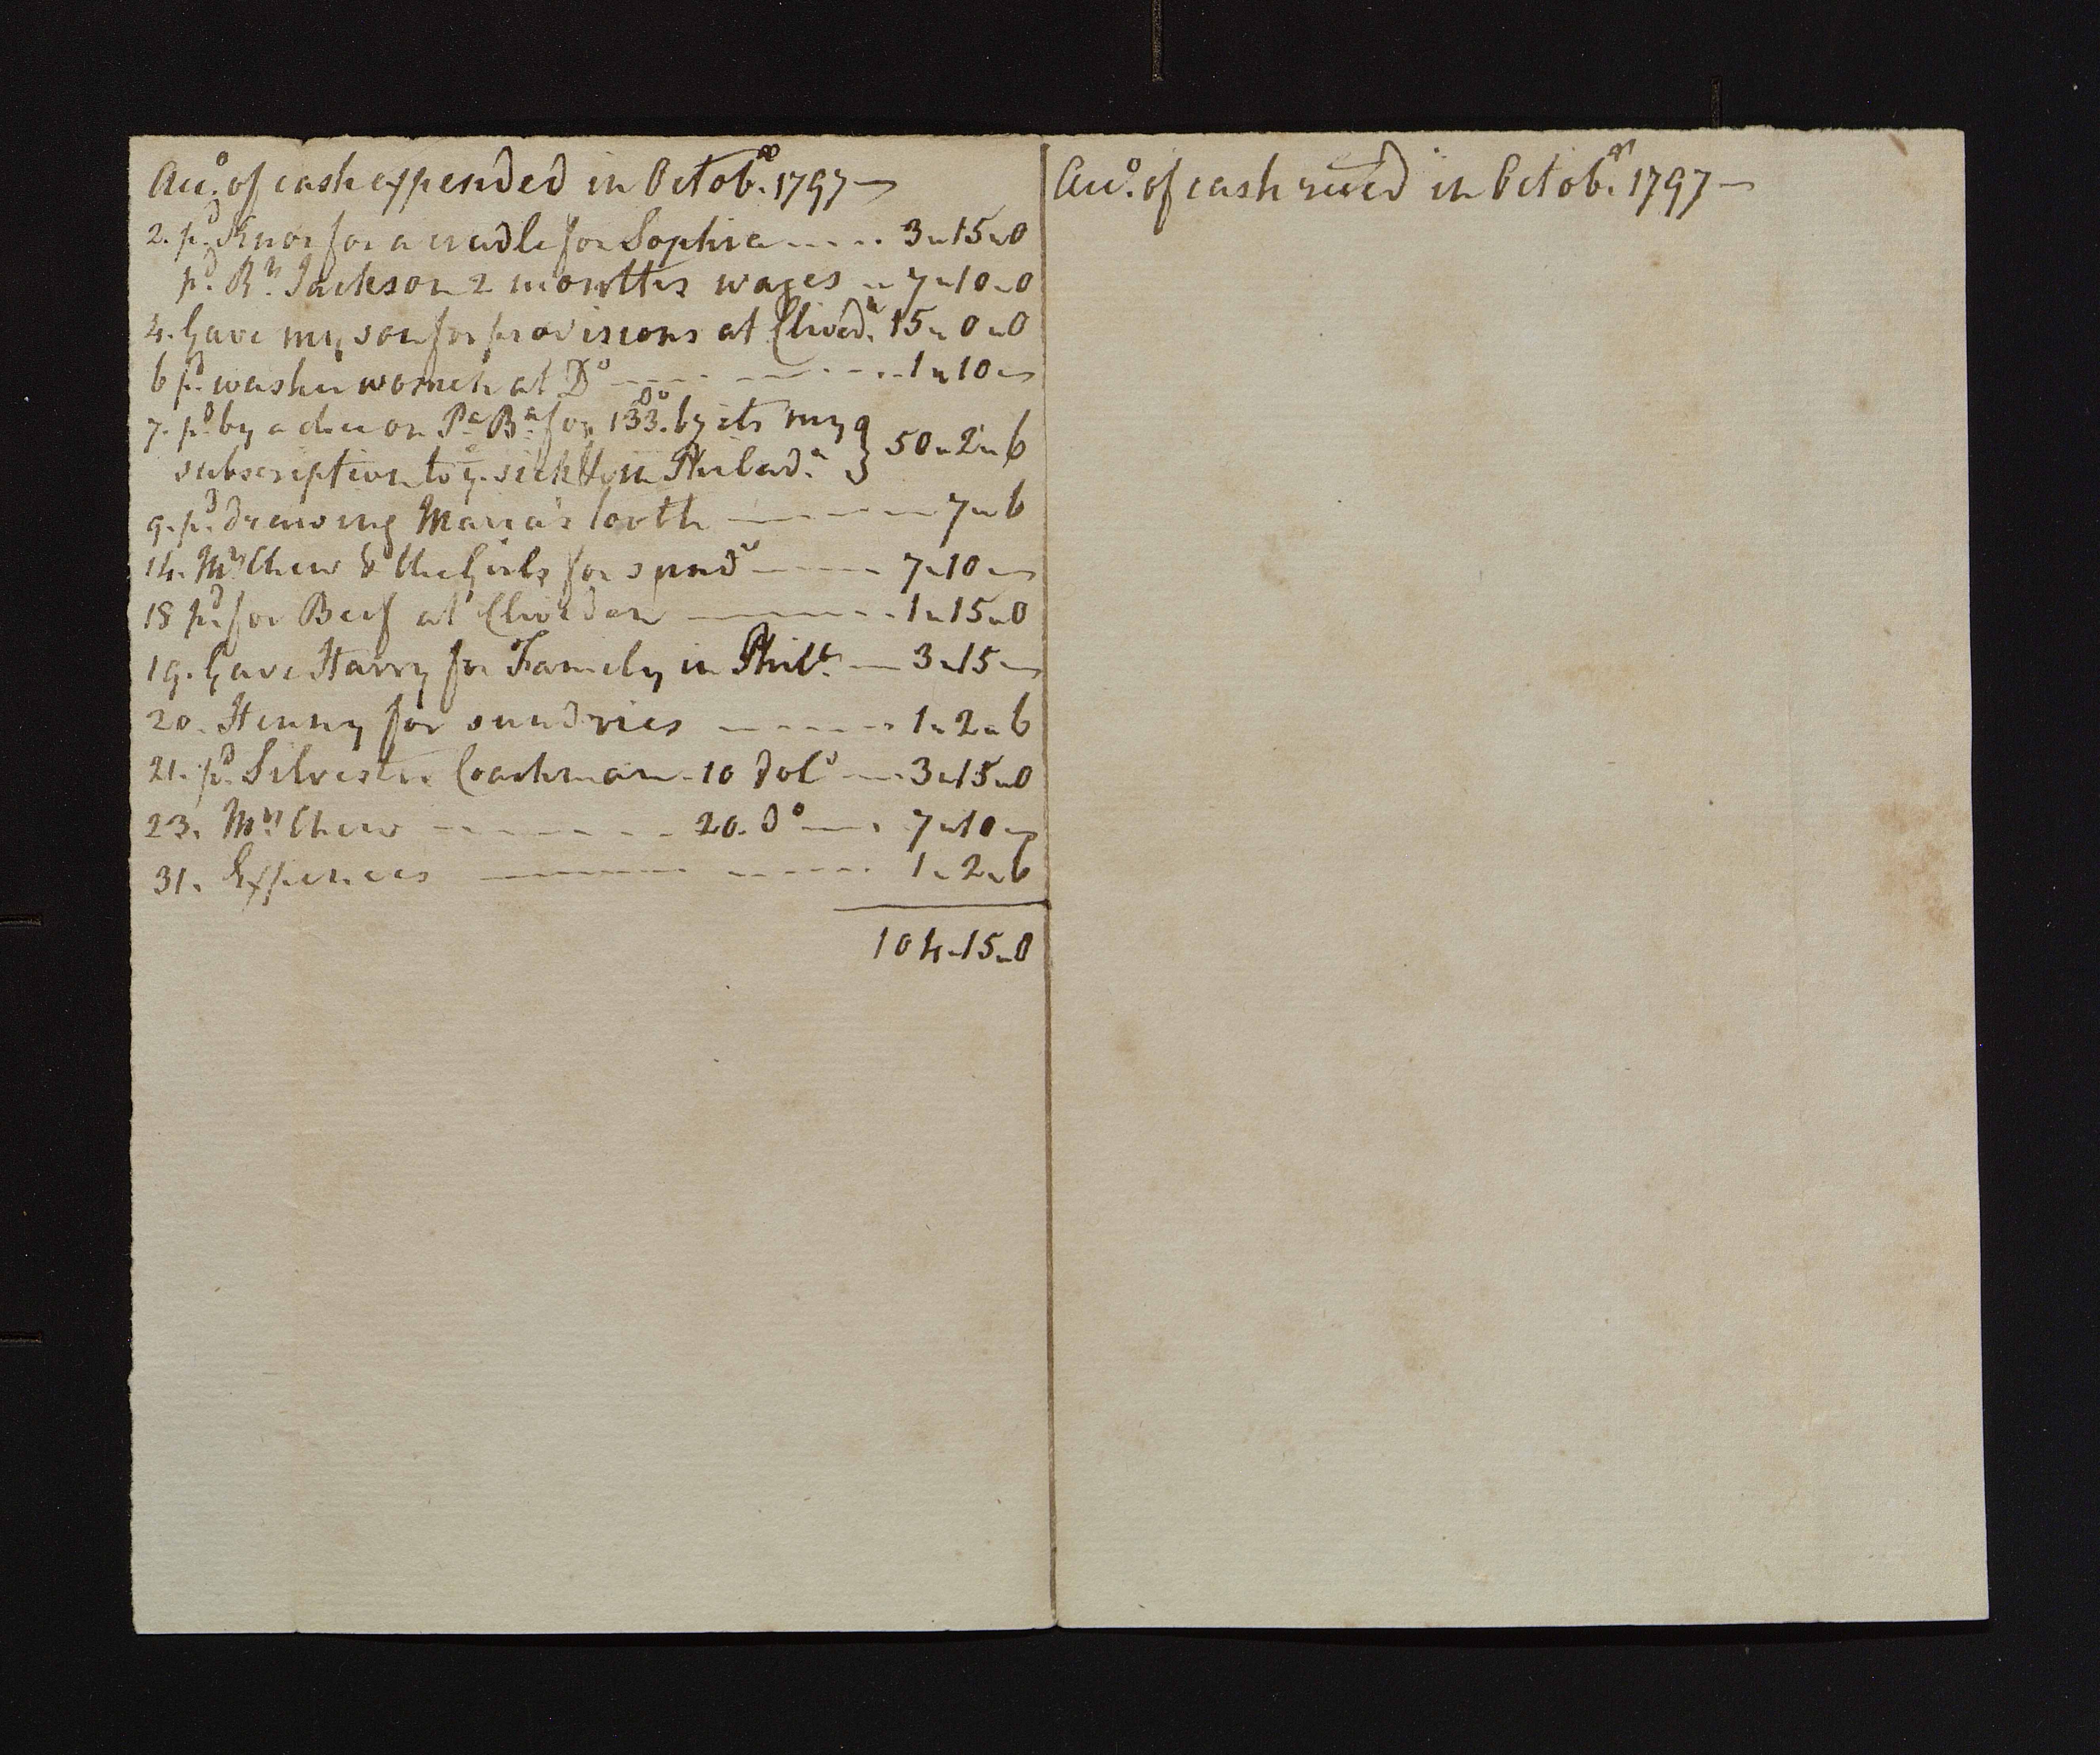 Acco. of cash expended in Octobr. 1797 —
2. pd. Knox for a cradle for Sophia .... 3"15"0
pd. Rt. Jackson 2 months wages " 7"10"0
4. Gave my son for provisions at Clivedn. 15"0"0
6 pd. washer women at Do ---- 1"10"
7. pd by a check on Pa Ba for 133. Do by its my } 50"2"6
subscription to ye. sick in Philada.
9. pd. drawing Maria's tooth ---- 7"6
14. Mrs Chew & the Girls for sunds ---- 7"10"
18 pd. for Beef at Clivedon ---- 1"15"0
19. Gave Harry for Family in Phila. — 3"15"
20. Henny for sundries ---- 1"2"6
21. pd. Silvester Coachman - 10 Dols — 3"15"0
23. Mrs Chew ---- 20. Do — 7"10"
31. Expences ---- 1"2"6
104"15"0
Acco. of cash recied in Octobr. 1797 —